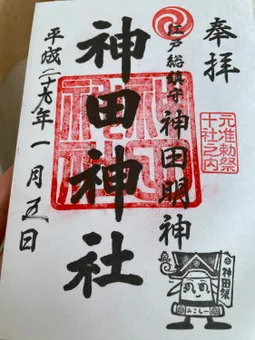 奉拝
元准勅祭
十社之内
江戸総鎮守 神田明神
神田祭
みこしー
神田神社
平成二十九年一月五日